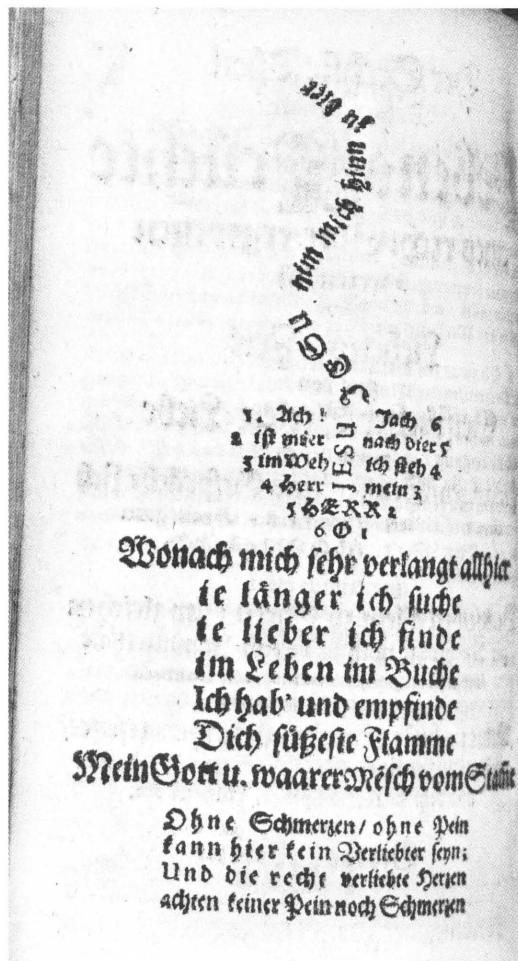 zu dier
Du nim mich hinn
JESU
1. Ach ! Jach 6
2 ist mier nach dier 5
3 im Weh ich steh 4
4 Herr mein 3
5 HÆRR 2
6 O 1
Wonach mich sehr verlangt allhier
ie länger ich suche
ie lieber ich finde
im Leben im Buche
Ich hab' und empfinde
Dich süßeste Flamme
Mein Gott u. waarer Mẽsch vom Stam̃e
Ohne Schmerzen / ohne Pein
kann hier kein Verliebter seyn;
Und die recht verliebte Herzen
achten keiner Pein noch Schmerzen